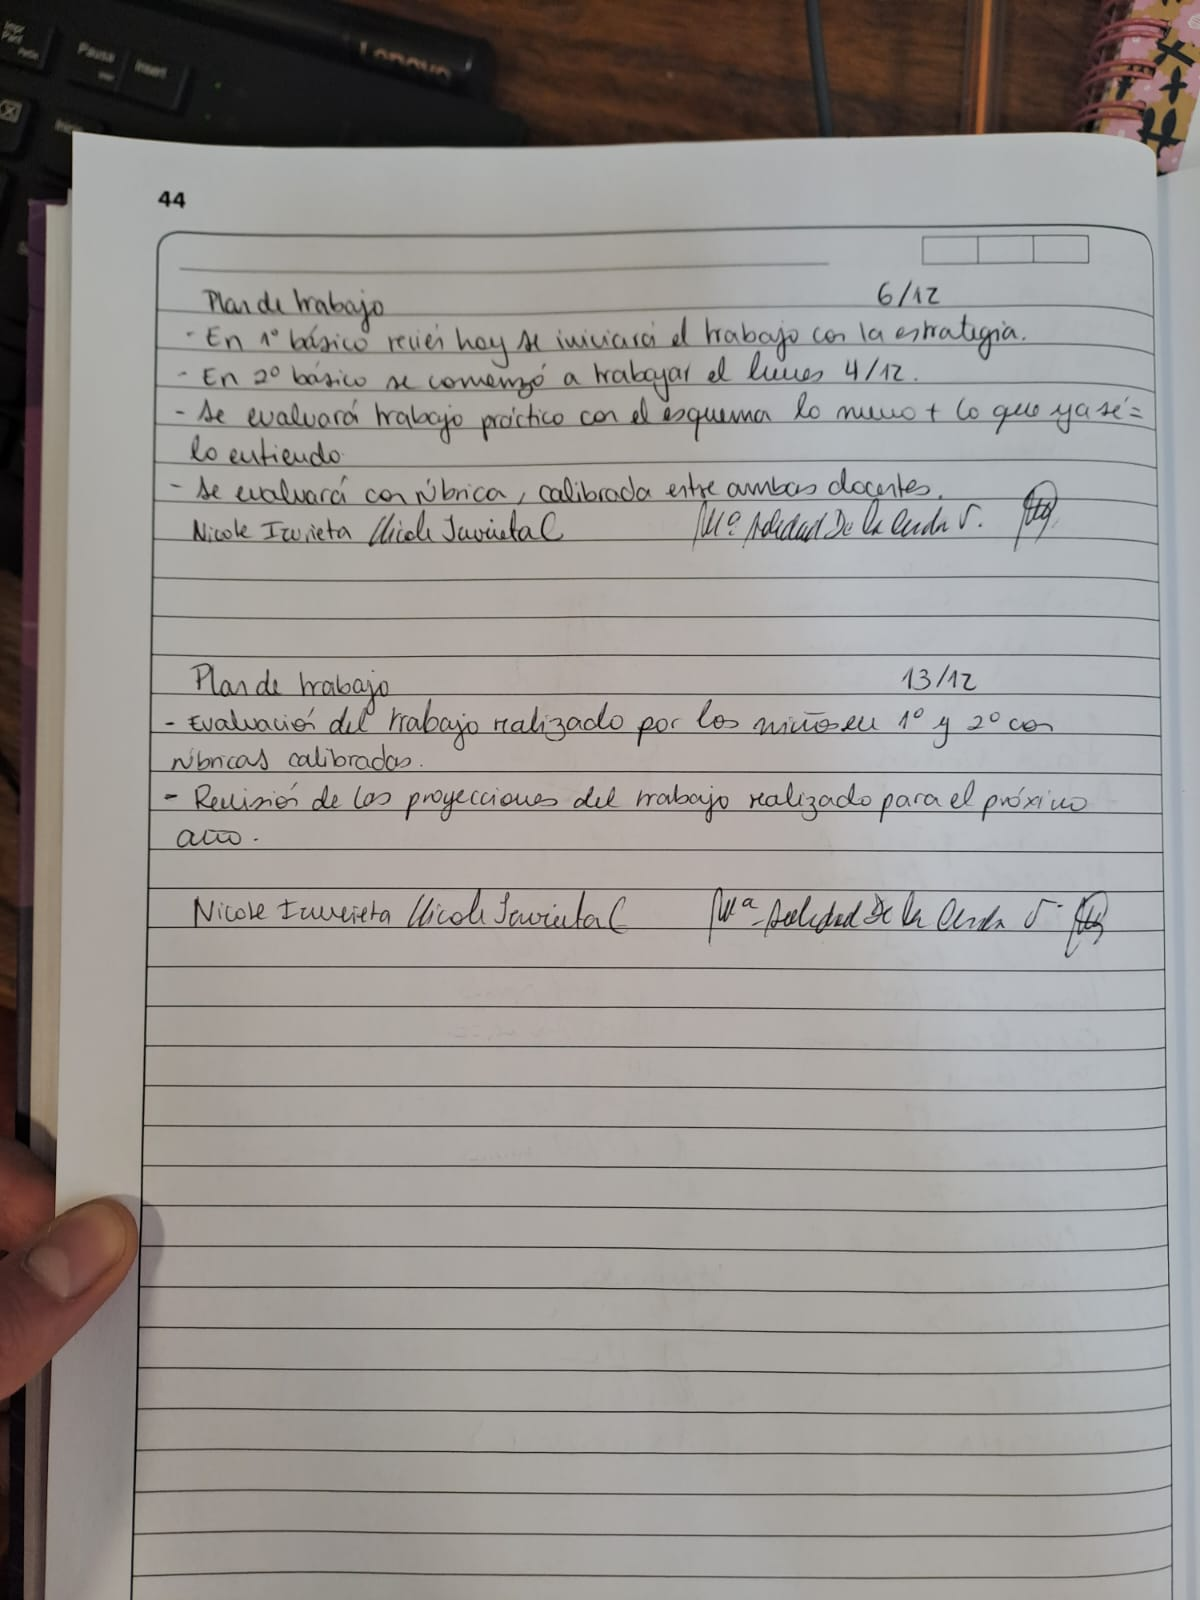 Impr
Pant
PetSis
Pause
Insert
Lenovo
44
Plan de trabajo 6/12
- En 1º básico recién hoy se iniciará el trabajo con la estrategia.
- En 2º básico se comenzó a trabajar el lunes 4/12.
- Se evaluará trabajo práctico con el esquema lo nuevo + lo que ya sé =
lo entiendo
- Se evaluará con rúbrica, calibrada entre ambas docentes.
Nicole Izurieta Nicole Izurieta C Mª Soledad De la Cerda V.
Plan de trabajo 13/12
- Evaluación del trabajo realizado por los niños en 1º y 2º con
rúbricas calibradas.
- Revisión de las proyecciones del trabajo realizado para el próximo
año.
Nicole Izurieta Nicole Izurieta C Mª Soledad De la Cerda V.